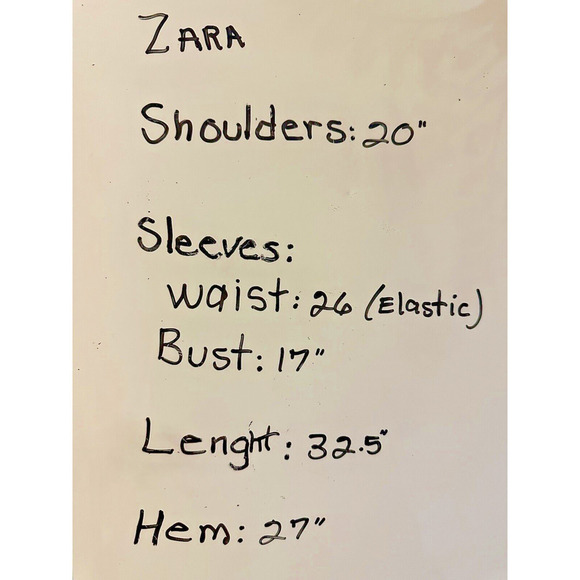 ZARA
Shoulders: 20"
Sleeves:
waist: 26 (Elastic)
Bust: 17"
Lenght: 32.5"
Hem: 27"